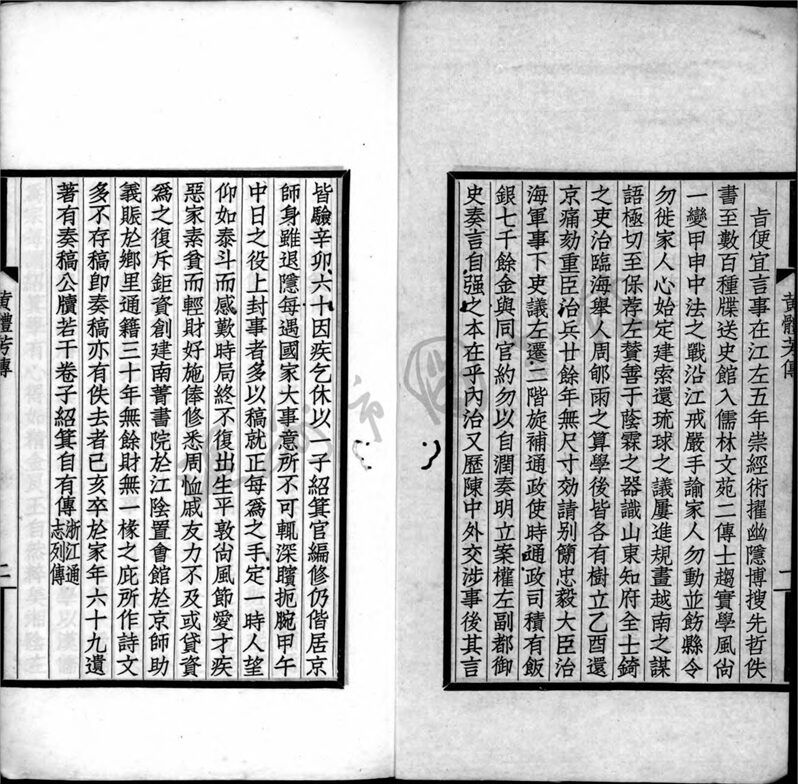 旨便宜言事在江左五年崇經術擢幽隱博搜先哲佚
書至數百種牒送史館入儒林文苑二傳士趨實學風尙
一變甲申中法之戰沿江戒嚴手諭家人勿動並飭縣令
勿徙家人心始定建索還琉球之議屢進規畫越南之謀
語極切至保荐左贊善于蔭霖之器識山東知府全士錡
之吏治臨海舉人周郇雨之算學後皆各有樹立乙酉還
京痛劾重臣治兵廿餘年無尺寸効請别簡忠毅大臣治
海軍事下吏議左遷二階旋補通政使時通政司積有飯
銀七千餘金與同官約勿以自潤奏明立案權左副都御
史奏言自强之本在乎內治又歷陳中外交涉事後其言
黃體芳傳
一
皆驗辛卯六十因疾乞休以一子紹箕官編修仍偕居京
師身雖退隱每遇國家大事意所不可輒深聵扼腕甲午
中日之役上封事者多以稿就正每爲之手定一時人望
仰如泰斗而感歎時局終不復出生平敦尙風節愛才疾
惡家素貧而輕財好施俸修悉周恤戚友力不及或貸資
爲之復斥鉅資創建南菁書院於江陰置會館於京師助
義賑於鄉里通籍三十年無餘財無一椽之庇所作詩文
多不存稿即奏稿亦有佚去者己亥卒於家年六十九遺
著有奏稿公牘若干卷子紹箕自有傳浙江通
志列傳
黃體芳傳
二